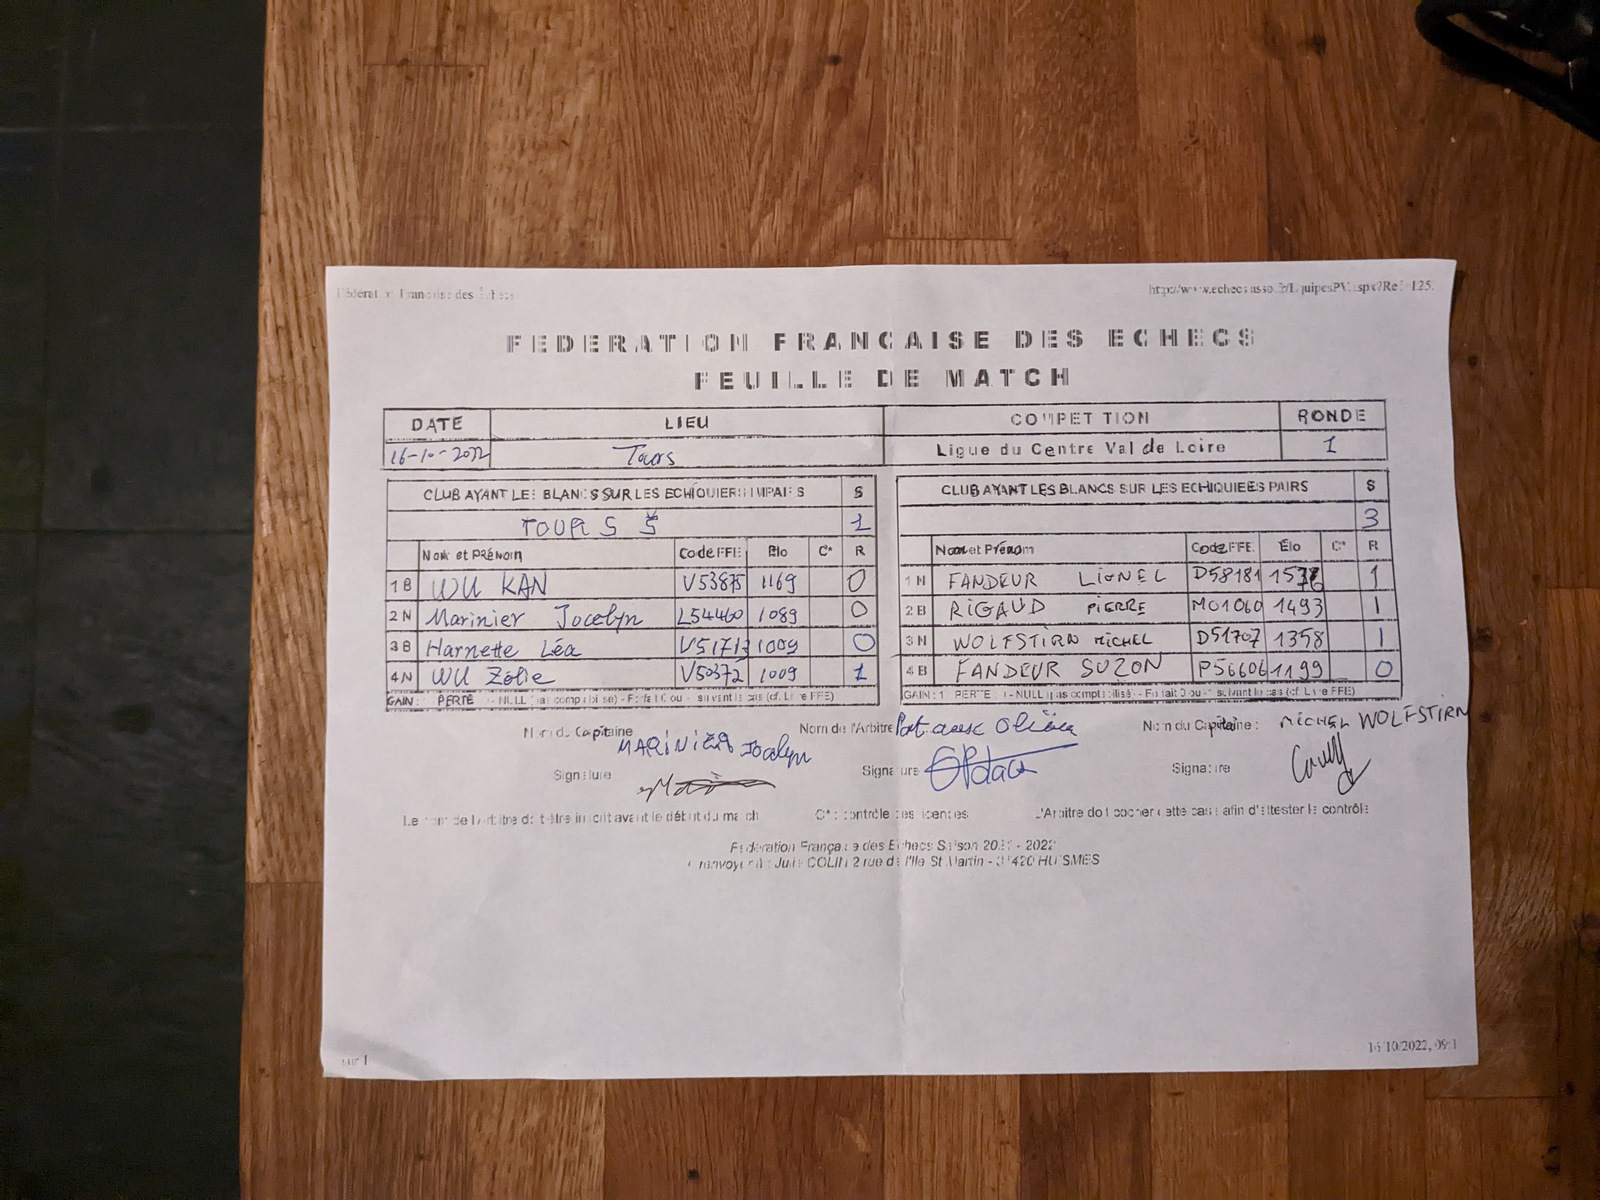 Fédération Française des Échecs
FEDERATION FRANCAISE DES ECHECS
FEUILLE DE MATCH
DATE LIEU COMPETITION RONDE
16-10-2022 Tours Ligue du Centre Val de Loire 1
CLUB AYANT LES BLANCS SUR LES ECHIQUIERS IMPAIRS S
TOURS 5 1
Nom et Prénom Code FFE Elo C* R
1 B WU KAN V53875 1169 0
2 N Marinier Jocelyn L54460 1089 0
3 B Harnette Léa V51713 1009 0
4 N WU Zélie V50372 1009 1
GAIN : PERTE - NULL (pas comptabilisé) - Forfait 0 ou - suivant le cas (cf. Livre FFE)
CLUB AYANT LES BLANCS SUR LES ECHIQUIERS PAIRS S
3
Nom et Prénom Code FFE Elo C* R
1 N FANDEUR LIONEL D58181 1R
2 B RIGAUD PIERRE M01060 1493 1
3 N WOLFSTIRN MICHEL D51707 1358 1
4 B FANDEUR SUZON P56606 1199 0
GAIN : 1 PERTE : - NULL (pas comptabilisé) - Forfait 0 ou - suivant le cas (cf. Livre FFE)
Nom du Capitaine MARINIER Jocelyn Nom de l'Arbitre Nom du Capitaine : MICHEL WOLFSTIRN
Signature Signature Signature
Le nom de l'Arbitre doit être inscrit avant le début du match C* : contrôle des licences L'Arbitre doit cocher cette case afin d'attester le contrôle
Fédération Française des Echecs Saison - 2022
COLIN 2 rue de l'Ile St Martin - 37420 HUISMES
sur 1
16/10/2022, 09:1